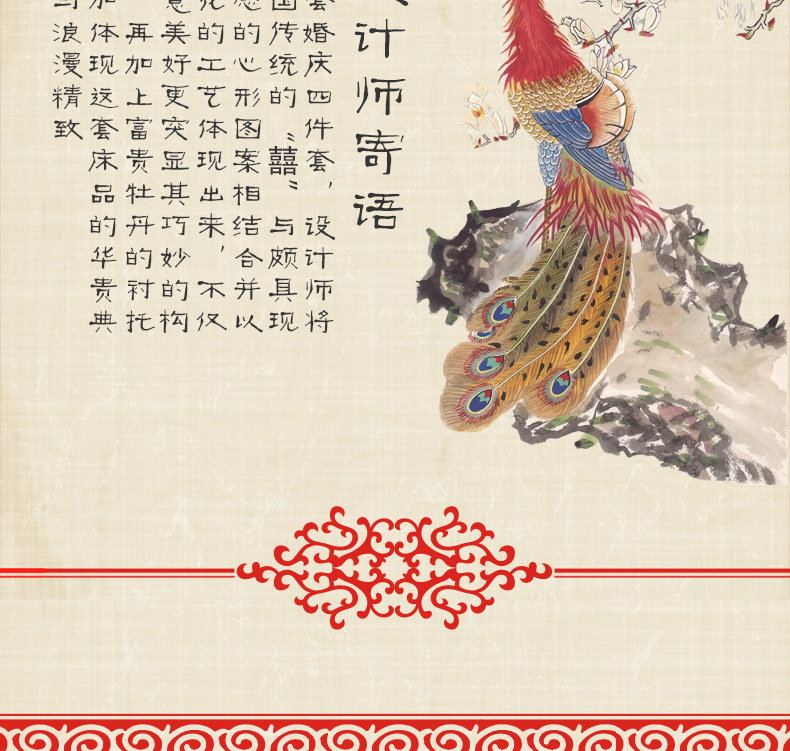 计师寄语
婚庆四件套，设计师将
传统的“囍”与颇具现
的心形图案相结合并以
的工艺体现出来，不仅
美好更突显其巧妙的构
再加上富贵牡丹的衬托
体现这套床品的华贵典
浪漫精致